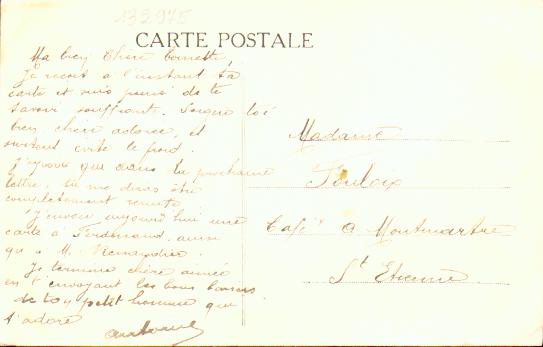 132975
CARTE POSTALE
Ma bien Chère
Je reçois à l'instant ta
carte et suis peiné de te
savoir souffrante. Soigne toi
bien chère adorée, et
surtout évite le froid.
J'espère que dans ta prochaine
lettre, tu me diras être
complètement remise
J'envoie aujourd'hui une
carte à Ferdinand ainsi
qu'à M.
Je termine chère aimée
en t'envoyant les bons baisers
de ton petit homme que
t'adore
Antoine
Madame
Fouloix
Café à Montmartre
St Etienne